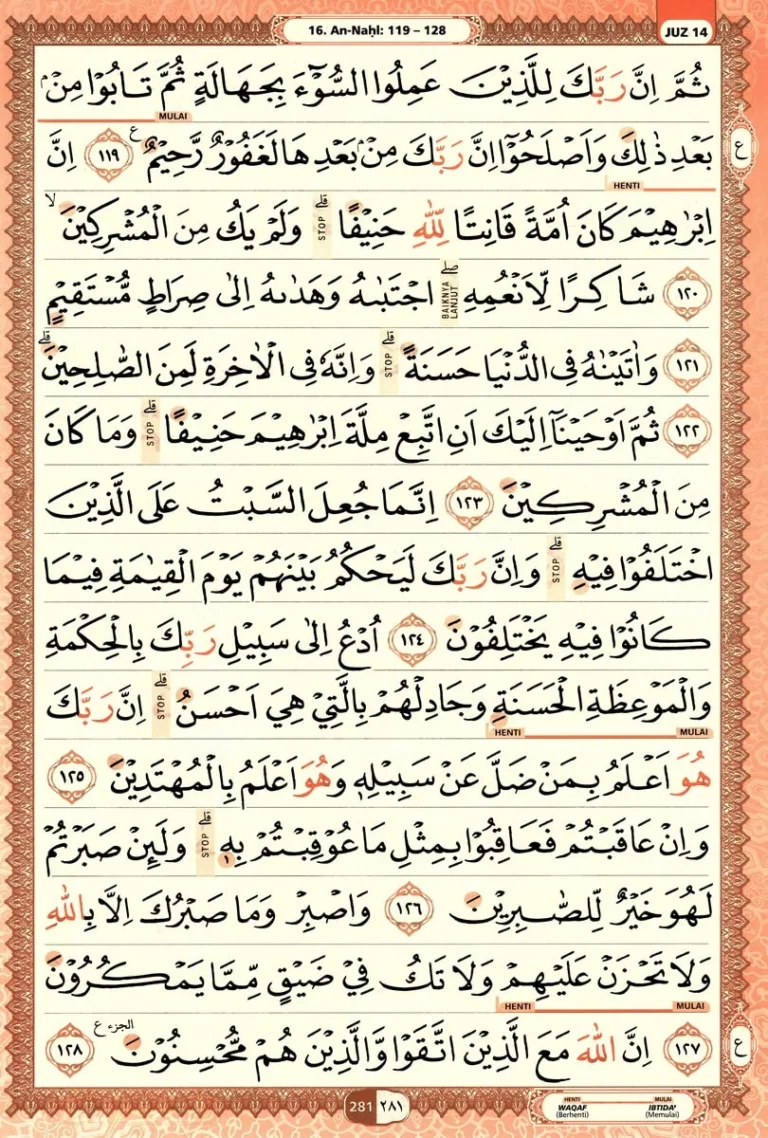 16. An-Naḥl: 119 – 128
JUZ 14
ثُمَّ اِنَّ رَبَّكَ لِلَّذِيْنَ عَمِلُوا السُّوْۤءَ بِجَهَالَةٍ ثُمَّ تَابُوْا مِنْۢ
MULAI
بَعْدِ ذٰلِكَ وَاَصْلَحُوْٓا اِنَّ رَبَّكَ مِنْۢ بَعْدِهَا لَغَفُوْرٌ رَّحِيْمٌ ࣖ ١١٩ اِنَّ
ع
HENTI
اِبْرٰهِيْمَ كَانَ اُمَّةً قَانِتًا لِّلّٰهِ حَنِيْفًاۗ STOP وَلَمْ يَكُ مِنَ الْمُشْرِكِيْنَۙ
١٢٠ شَاكِرًا لِّاَنْعُمِهِۖ BAIKNYA LANJUT اِجْتَبٰىهُ وَهَدٰىهُ اِلٰى صِرَاطٍ مُّسْتَقِيْمٍ
١٢١ وَاٰتَيْنٰهُ فِى الدُّنْيَا حَسَنَةًۗ STOP وَاِنَّهٗ فِى الْاٰخِرَةِ لَمِنَ الصّٰلِحِيْنَۗ
١٢٢ ثُمَّ اَوْحَيْنَآ اِلَيْكَ اَنِ اتَّبِعْ مِلَّةَ اِبْرٰهِيْمَ حَنِيْفًاۗ STOP وَمَا كَانَ
مِنَ الْمُشْرِكِيْنَ ١٢٣ اِنَّمَا جُعِلَ السَّبْتُ عَلَى الَّذِيْنَ
اخْتَلَفُوْا فِيْهِۗ STOP وَاِنَّ رَبَّكَ لَيَحْكُمُ بَيْنَهُمْ يَوْمَ الْقِيٰمَةِ فِيْمَا
كَانُوْا فِيْهِ يَخْتَلِفُوْنَ ١٢٤ اُدْعُ اِلٰى سَبِيْلِ رَبِّكَ بِالْحِكْمَةِ
وَالْمَوْعِظَةِ الْحَسَنَةِ وَجَادِلْهُمْ بِالَّتِيْ هِيَ اَحْسَنُۗ STOP اِنَّ رَبَّكَ
HENTI MULAI
هُوَ اَعْلَمُ بِمَنْ ضَلَّ عَنْ سَبِيْلِهٖ وَهُوَ اَعْلَمُ بِالْمُهْتَدِيْنَ ١٢٥
وَاِنْ عَاقَبْتُمْ فَعَاقِبُوْا بِمِثْلِ مَا عُوْقِبْتُمْ بِهٖۗ STOP وَلَىِٕنْ صَبَرْتُمْ
لَهُوَ خَيْرٌ لِّلصّٰبِرِيْنَ ١٢٦ وَاصْبِرْ وَمَا صَبْرُكَ اِلَّا بِاللّٰهِ
وَلَا تَحْزَنْ عَلَيْهِمْ وَلَا تَكُ فِيْ ضَيْقٍ مِّمَّا يَمْكُرُوْنَ
HENTI MULAI
١٢٧ اِنَّ اللّٰهَ مَعَ الَّذِيْنَ اتَّقَوْا وَّالَّذِيْنَ هُمْ مُّحْسِنُوْنَ ࣖ الجزء ١٢٨
ع
281 ٢٨١
HENTI MULAI
WAQAF (Berhenti) IBTIDA' (Memulai)